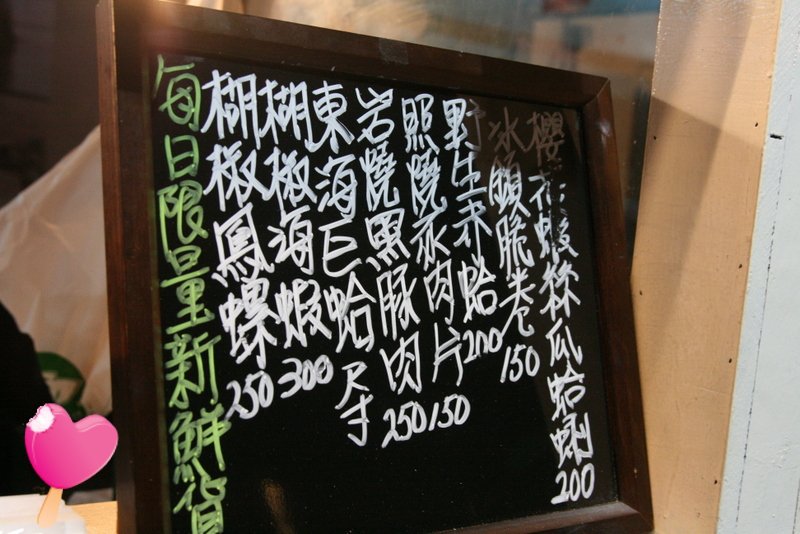 每日限量新鮮貨
楜椒鳳螺250
楜椒海蝦300
東海巨蛤尺寸
岩燒黑豚肉250
照燒肉片150
野生蛤200
冰脆卷150
櫻花蝦絲瓜蛤蜊200